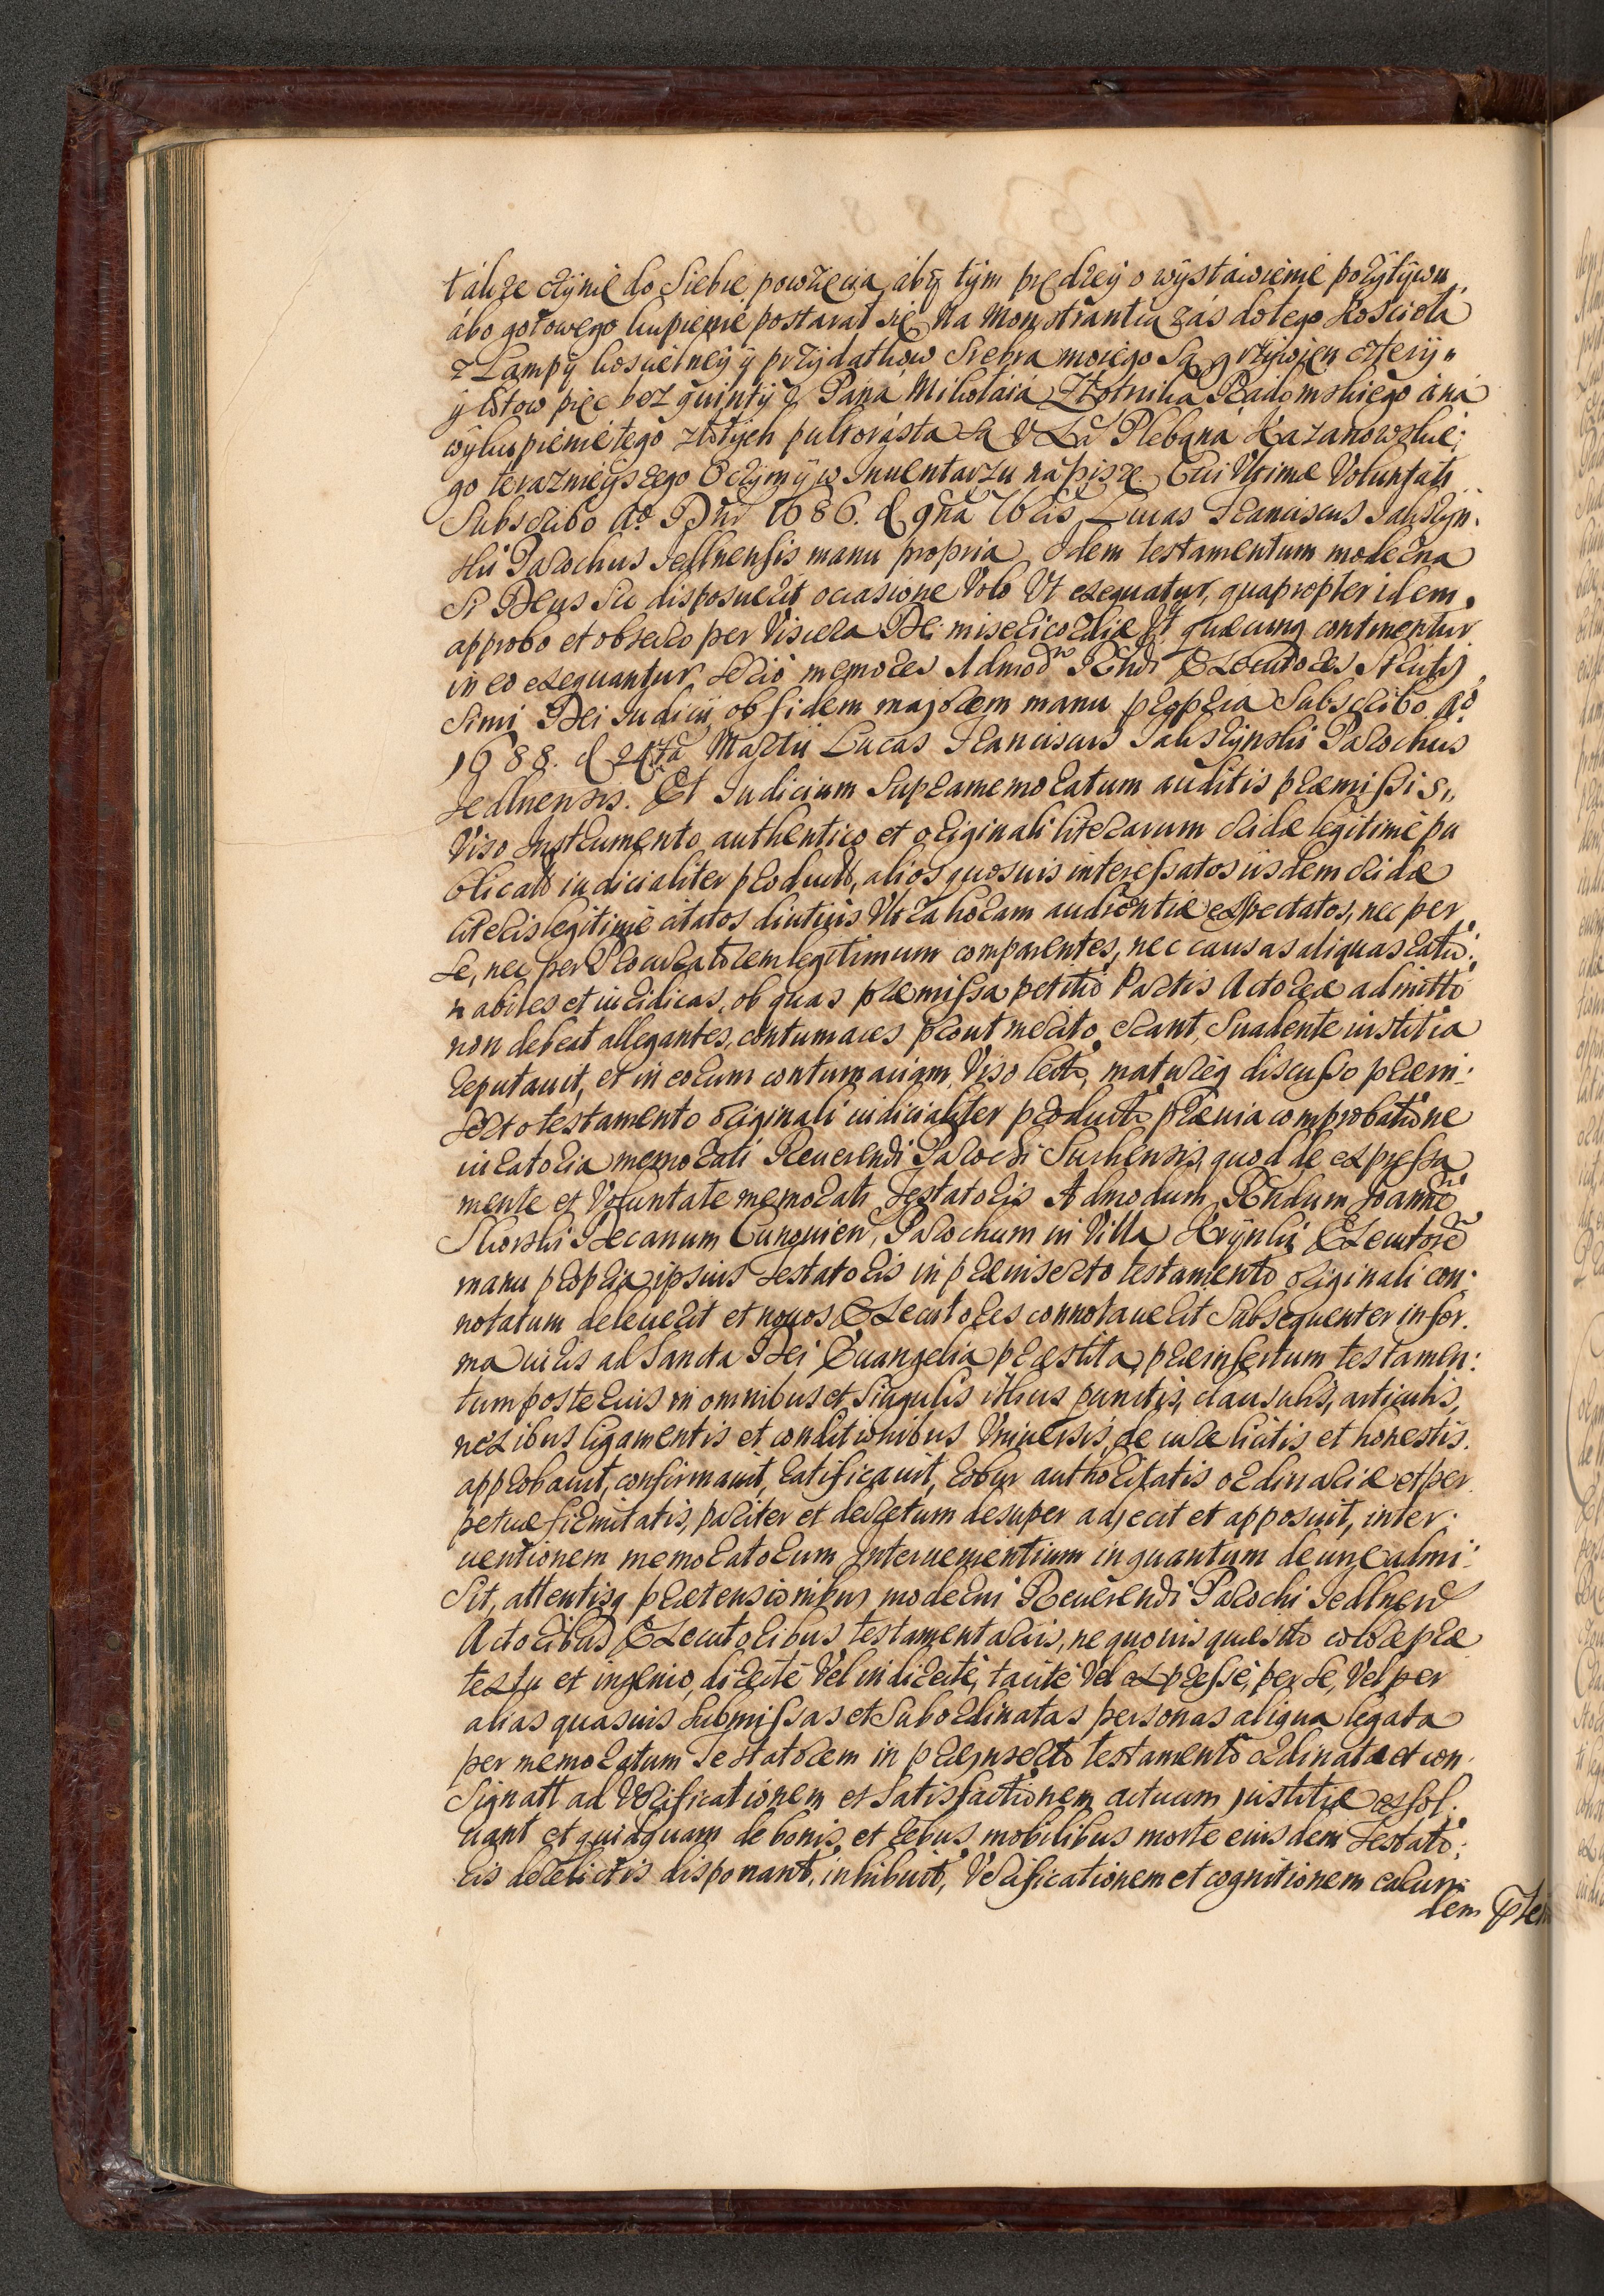 także czÿnię do siebie powzięcia, abÿ tÿm prędzeÿ o wÿstawienie pozÿtÿwu
ábo gotowego kupienie postarał się, Na Monstrantią zás do tego Kosciołá
z Lampÿ koscielneÿ ÿ przÿdatkow Srebra moiego są grzÿwien czterÿ
ÿ łotow pięc bez quintÿ V Páná Mikołáiá Złotnika Radomskiego á ná
wÿkupienie tego złotÿch pułtorásta są V Xdá Plebaná Kazanowskie:
go teraznieÿszego O czÿm ÿ w Inuentarzu nápiszę. Cui Vltimæ Voluntati
Subscribo Aō Dnī 1686. d 9na 7bris Lucas Franciscus Jakszÿn:
ski Parochus Jedlnensis manu propria, Idem testamentum moderna
Si Deus sic disposuerit occasione Volo Vt exequatur, quapropter idem
approbo et obsecro per Viscera Dei misericordiæ Vt quæcunq continentur
in eo exequantur serio memores Admodm Rndi Executores Strictis
simi Dei Iudicii, ob fidem majorem manu propria Subscribo Aō
1688. d 24ta Martii Lucas Franciscus Jakszÿnski Parochus
Jedlnensis. Et Iudicium Supramemoratum auditis præmissis,
Viso Instrumento authentico et originali literarum cridæ legitimè pu
blicato iudicialiter producto, alios quosuis interessatos iisdem cridæ
literis legitimè citatos diutius Vltra horam audientiæ expectatos, nec per
se, nec per Procuratorem legitimum comparentes, nec causas aliquas ratio:
nabiles et iuridicas, ob quas præmissa petitio Partis Actoreæ admitti
non debeat allegantes, contumaces prout merito erant, Suadente iustitia
reputauit, et in eorum contumaciam, Viso lecto, matureq discusso præin:
serto testamento originali iudicialiter producto præuia comprobatione
iuratoria memorati Reuerendi Parochi Suchensis, quod de expressa
mente et Voluntate memorati Testatoris Admodum Rndum Joannē
Skorski Decanum Cunouien, Parochum in Villa Krÿnki, Executorē
manu propria ipsius Testatoris in præinserto testamento originali con:
notatum deleuerit et nouos Executores connotauerit Subsequenter in for.
ma iuris ad Sancta Dei Euangelia præstita, præinsertum testamen:
tum posterius in omnibus et Singulis illius punctis, clausulis, articulis,
nexibus ligamentis et conditionibus Vniuersis, de iure licitis et honestis.
approbauit, confirmauit, ratificauit, robur authoritatis ordinariæ et per
petuæ firmitatis, pariter et decretum desuper adjecit et apposuit, inter:
uentionem memoratorum Interuenientium in quantum de iure admi:
sit, attentisq prætensionibus moderni Reuerendi Parochi Jedlnen
Actoribus Executoribus testamentariis, ne quouis quæsito colore præ
textu et ingenio, directè Vel indirectè, tacitè Vel expressè, per se, Vel per
alias quasuis submissas et Subordinatas personas aliqua legata
per memoratum Testatorem in præinserto testamento ordinata et con
signatt ad Verificationem et satisfactionem actuum justitiæ exsol:
uant et quidquam de bonis et rebus mobilibus morte eiusdem Testato:
ris derelictis disponant, inhibuit, Verificationem et cognitionem earun
dem